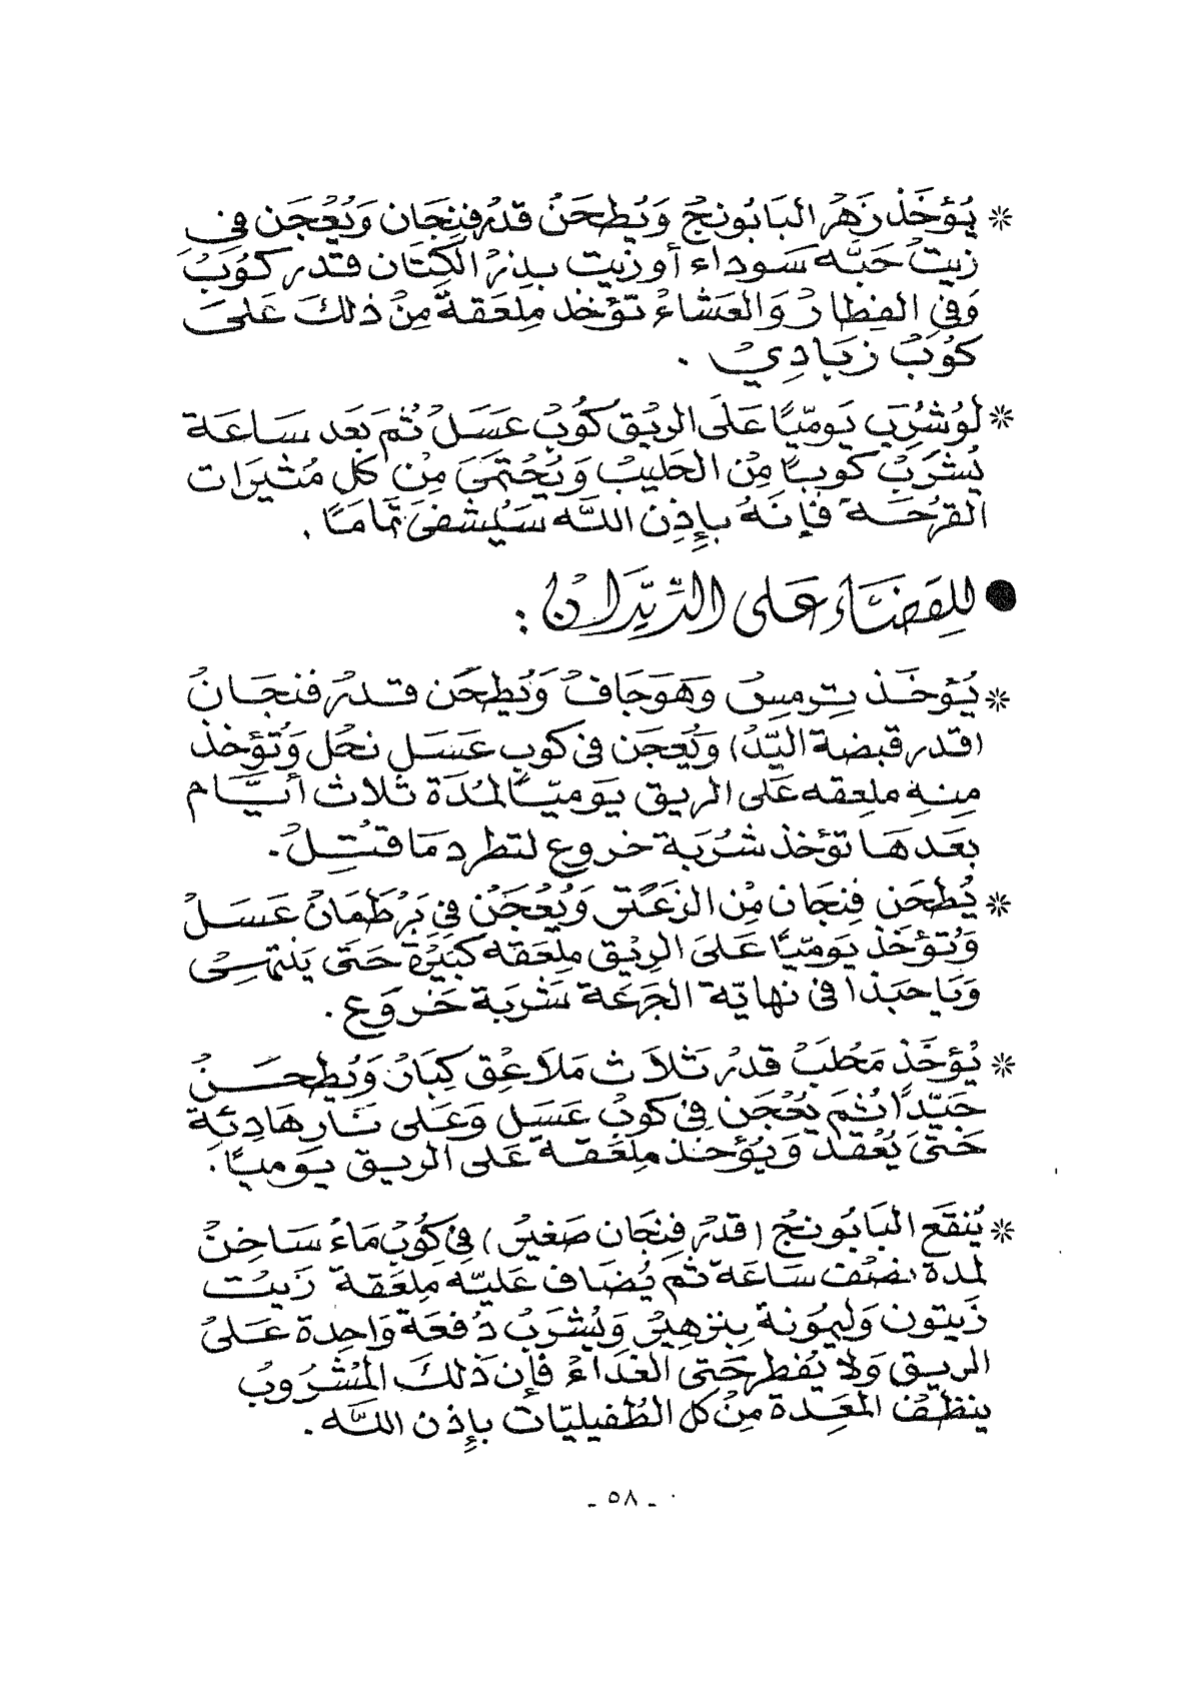 * يُؤخَذ زَهرُ البَابُونجُ وَيُطحَنُ قدرُ فِنجَان وَيُعْجَن في
زيتُ حَبَّه سَوداء أو زيت بِذرُ الكتَان قدر كوُبُ
وَفي الفِطارُ وَالعَشاءُ تؤخذ مِلعَقةُ مِنْ ذلكَ عَلىَ
كوُبُ زبَادِيُ .
* لوُشُرِب يَوميًّا عَلَى الريْق كُوبُ عَسَلُ ثُمَ بَعَد سَاعَة
يُشرَبُ كوبًا مِنْ الحَليبُ وَيُحْتمَىَ مِنْ كل مُثيرَات
القرُحَة فَإنَهُ بإِذِن اللَّه سَيُشفىَ تمَّامًا .
● للِقَضَاءَ عَلى الدِّيِّدَانُ :
* يُؤخَذ تِرمِسُ وَهَوَجَافُ وَيُطِحَن قدرُ فنجَانُ
(قدر قبضة اليَّدُ) وَيُعجَن في كوبِ عَسَلِ نحُل وَتُؤخذ
مِنهِ ملِعقه عَلى الريق يَوَميًّا لمُدَة ثلاث أيَّام
بعَدهَا تؤخذ شُرُبَة خروع لتطرد مَا قتُِلُ.
* يُطحَن فِنجَان مِنْ الزَعَتَر وَيُعْجَنْ في بَرُطَمَانُ عَسَلُ
وَتُؤخَذ يَوميًّا عَلىَ الرِيْق مِلعَقه كبَيرُة حَتىَ يَنتهِىُ
وَيَاحبَذا في نهايّة الجَرعَة شَربَة خَروَع .
* يُؤخَذ مَحُلبُ قدرُ ثَلاَث مَلاَعِق كِبَارُ وَيُطحَنُ
جَيّدًا ثُمَ يُعُجَن في كوبُ عَسَلِ وَعَلى نَارِ هَادِئِة
حَتىَ يَعُقدُ وَيُؤخَذ مِلعَقة عَلى الريق يَوميًّا .
* يُنقَع البَابُونجُ (قدرُ فِنجَان صَغيرُ) في كُوُبُ مَاءُ سَاخِنُ
لمدة نصُف سَاعَة ثُم يُضَاف عَليّه مَلِعَقة زَيتُ
زَيتون وَليمُونة بِنزهِيرُ وَيُشرَبُ دُفعَة وَاحِدة عَلىُ
الريق وَلا يُفطرحَتى الغدَاءُ فَإن ذَلكَ المُشرُوبُ
ينظفُ المعَدة مِنُ كل الطُفيليّات بإِذن اللَّه .
- ٥٨ -